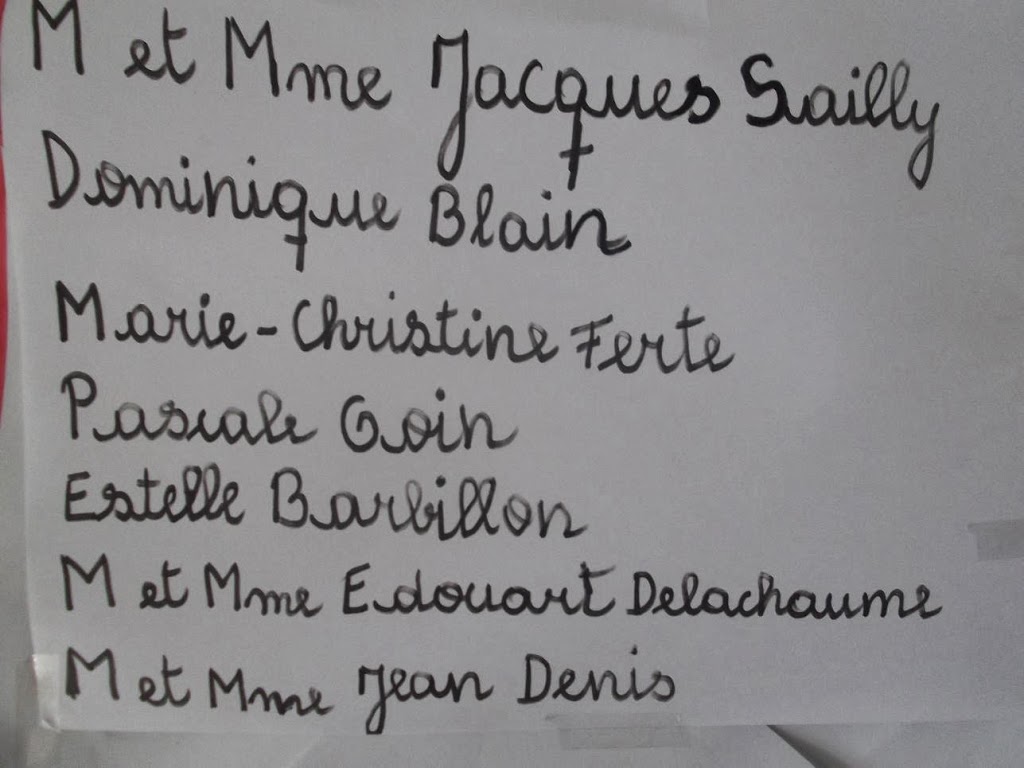 M et Mme Jacques Sailly
Dominique Blain
Marie-Christine Ferte
Pascale Goin
Estelle Barbillon
M et Mme Edouart Delachaume
M et Mme Jean Denis